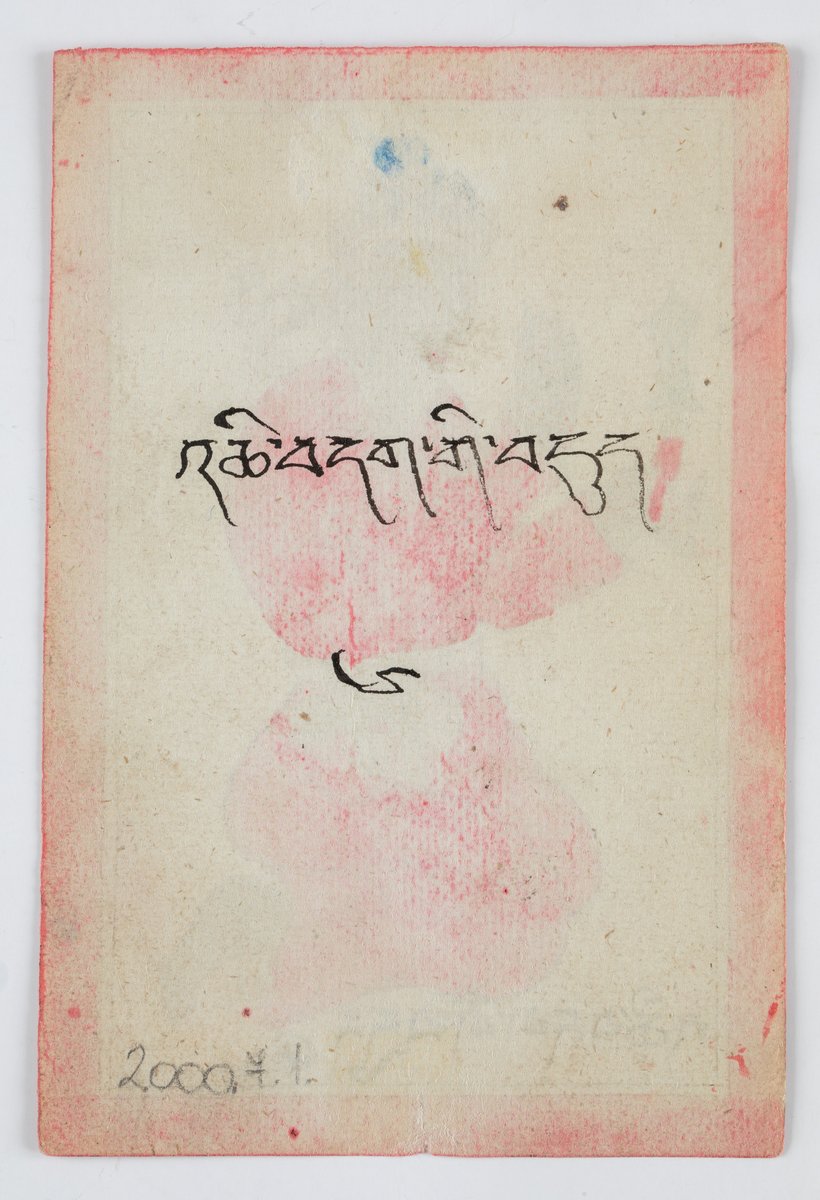 འཆི་བདག་གི་བདུད
2000.